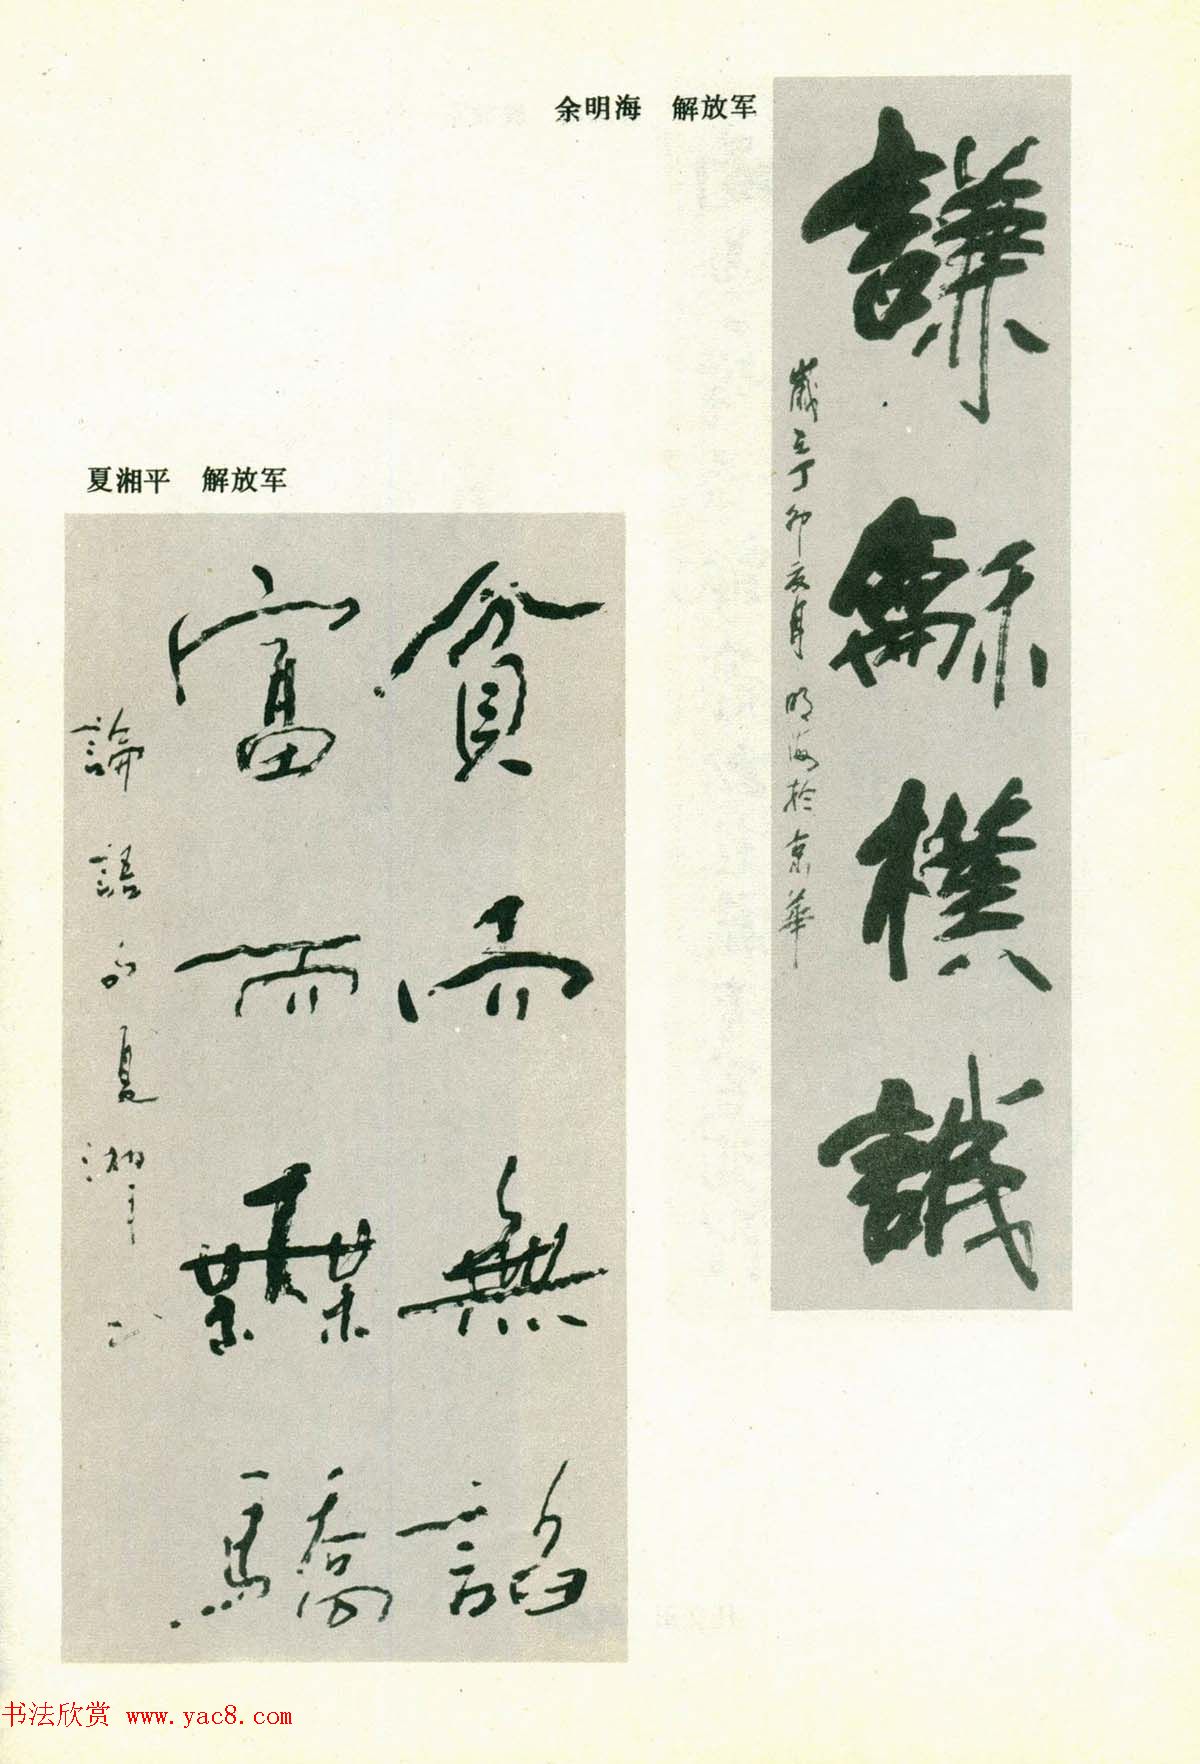 余明海　解放军
謙龢樸誠
歲在丁卯亥月 明海於京華
夏湘平　解放军
貧而無諂
富而無驕
論語句夏湘平书
书法欣赏 www.yac8.com